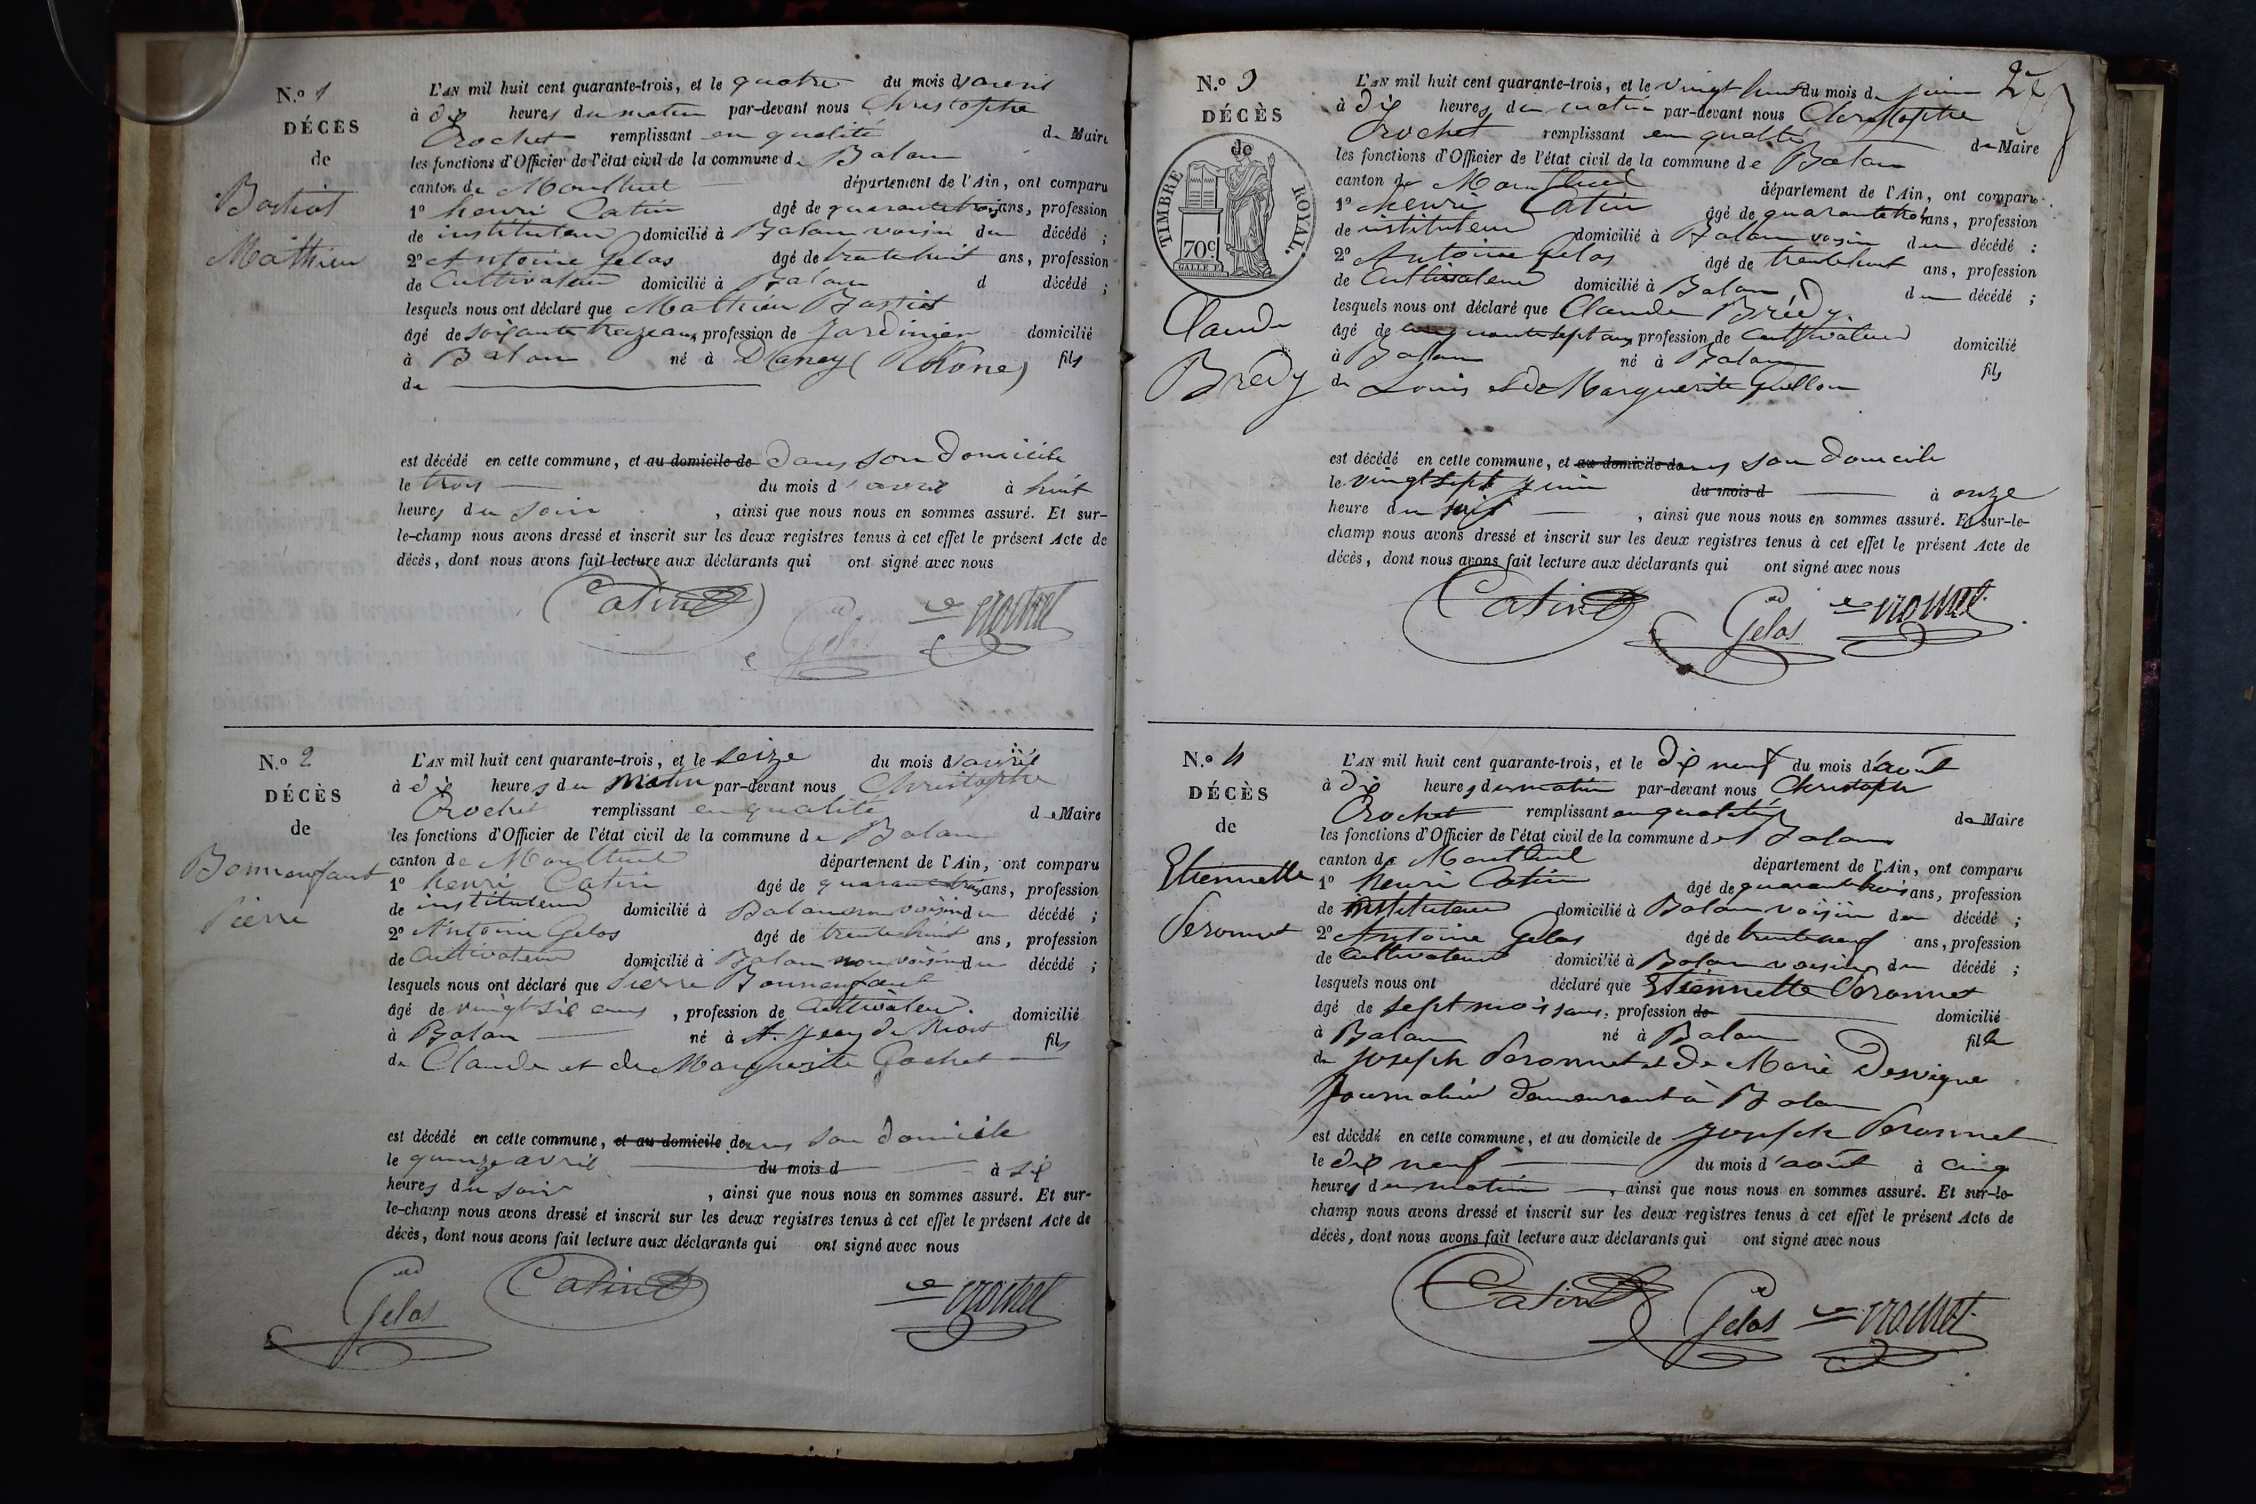 N.º 1
DÉCÈS
de
Bastiat
Mathieu
L'AN mil huit cent quarante-trois, et le quatre du mois d'avril
à dix heures du matin par-devant nous Christophe
Crochet remplissant en qualité de Maire
les fonctions d'Officier de l'état civil de la commune de Balan
canton de Montluel département de l'Ain, ont comparu
1º henri Catin âgé de quarante trois ans, profession
de instituteur domicilié à Balan voisin du décédé ;
2º Antoine Gelas âgé de trente huit ans, profession
de Cultivateur domicilié à Balan d décédé ;
lesquels nous ont déclaré que Mathieu Bastiat
âgé de soixante treize ans, profession de Jardinier domicilié
à Balan né à (Rhone) fils
de
est décédé en cette commune, et au domicile de dans son domicile
le trois du mois d'avril à huit
heures du soir , ainsi que nous nous en sommes assuré. Et sur-
le-champ nous avons dressé et inscrit sur les deux registres tenus à cet effet le présent Acte de
décès, dont nous avons fait lecture aux déclarants qui ont signé avec nous
Catin Gelas Crochet
N.º 2
DÉCÈS
de
Bonnenfant
Pierre
L'AN mil huit cent quarante-trois, et le seize du mois d'avril
à dix heures du matin par-devant nous Christophe
Crochet remplissant en qualité de Maire
les fonctions d'Officier de l'état civil de la commune de Balan
canton de Montluel département de l'Ain, ont comparu
1º henri Catin âgé de quarante trois ans, profession
de instituteur domicilié à Balan non voisin du décédé ;
2º Antoine Gelas âgé de trente huit ans, profession
de Cultivateur domicilié à Balan non voisin du décédé ;
lesquels nous ont déclaré que Pierre Bonnenfant
âgé de vingt six ans , profession de Cultivateur domicilié
à Balan né à St. Jean de Niost fils
de Claude et de Marguerite Gochet
est décédé en cette commune, et au domicile de dans son domicile
le quinze avril du mois d à six
heures du soir , ainsi que nous nous en sommes assuré. Et sur-
le-champ nous avons dressé et inscrit sur les deux registres tenus à cet effet le présent Acte de
décès, dont nous avons fait lecture aux déclarants qui ont signé avec nous
Gelas Catin Crochet
N.º 3
DÉCÈS
de
TIMBRE ROYAL.
70 c.
Claude
Brédy
L'AN mil huit cent quarante-trois, et le vingt huit du mois de juin
à dix heures du matin par-devant nous Christophe
Crochet remplissant en qualité de Maire
les fonctions d'Officier de l'état civil de la commune de Balan
canton de Montluel département de l'Ain, ont comparu
1º henri Catin âgé de quarante trois ans, profession
de instituteur domicilié à Balan voisin du décédé ;
2º Antoine Gelas âgé de trente huit ans, profession
de Cultivateur domicilié à Balan du décédé ;
lesquels nous ont déclaré que Claude Brédy
âgé de cinquante sept ans, profession de cultivateur domicilié
à Balan né à Balan fils
de Louis et de Marguerite Guillon
est décédé en cette commune, et au domicile dans son domicile
le vingt sept juin du mois d à onze
heure du soir , ainsi que nous nous en sommes assuré. Et sur-le-
champ nous avons dressé et inscrit sur les deux registres tenus à cet effet le présent Acte de
décès, dont nous avons fait lecture aux déclarants qui ont signé avec nous
Catin Gelas Crochet
N.º 4
DÉCÈS
de
Etiennette
Peronnet
L'AN mil huit cent quarante-trois, et le dix neuf du mois d'août
à dix heures du matin par-devant nous Christophe
Crochet remplissant en qualité de Maire
les fonctions d'Officier de l'état civil de la commune de Balan
canton de Montluel département de l'Ain, ont comparu
1º henri Catin âgé de quarante trois ans, profession
de instituteur domicilié à Balan voisin du décédé ;
2º Antoine Gelas âgé de trente neuf ans, profession
de Cultivateur domicilié à Balan voisin du décédé ;
lesquels nous ont déclaré que Etiennette Peronnet
âgé de sept mois sans, profession de domicilié
à Balan né à Balan fille
de Joseph Peronnet et de Marie Desvigne
Journalier demeurant à Balan
est décédé en cette commune, et au domicile de Joseph Peronnet
le dix neuf du mois d'août à cinq
heures du matin , ainsi que nous nous en sommes assuré. Et sur-le-
champ nous avons dressé et inscrit sur les deux registres tenus à cet effet le présent Acte de
décès, dont nous avons fait lecture aux déclarants qui ont signé avec nous
Catin Gelas Crochet